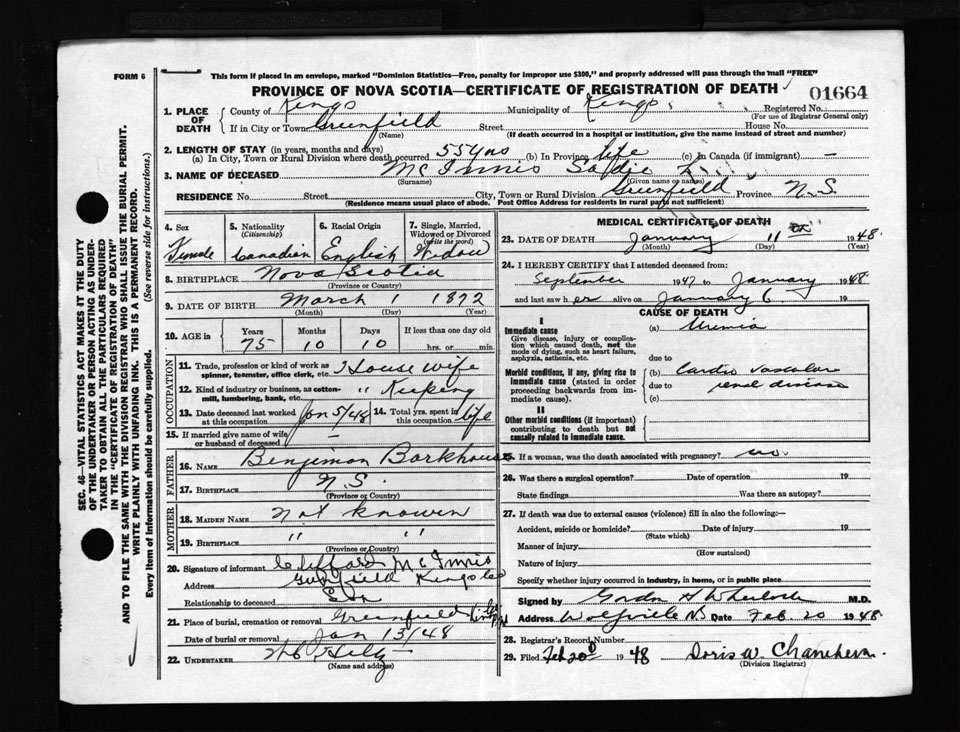 FORM 6
This form if placed in an envelope, marked "Dominion Statistics—Free, penalty for improper use $300," and properly addressed will pass through the mail "FREE"
PROVINCE OF NOVA SCOTIA—CERTIFICATE OF REGISTRATION OF DEATH
01664
1. PLACE OF DEATH County of Kings Municipality of Kings Registered No.
(For use of Registrar General only)
If in City or Town Greenfield Street House No.
(Name) (If death occurred in a hospital or institution, give the name instead of street and number)
2. LENGTH OF STAY (in years, months and days)
(a) In City, Town or Rural Division where death occurred 55 yrs (b) In Province life (c) In Canada (if immigrant) —
3. NAME OF DECEASED McInnis Sadie
(Surname) (Given name or names)
RESIDENCE No. Street City, Town or Rural Division Greenfield Province N.S.
(Residence means usual place of abode. Post Office Address for residents in rural parts not sufficient)
4. Sex Female
5. Nationality (Citizenship) Canadian
6. Racial Origin English
7. Single, Married, Widowed or Divorced (write the word) Widow
8. BIRTHPLACE Nova Scotia
(Province or Country)
9. DATE OF BIRTH March 1 1872
(Month) (Day) (Year)
10. AGE in Years Months Days If less than one day old
75 10 10 hrs. or min.
OCCUPATION
11. Trade, profession or kind of work as spinner, teamster, office clerk, etc. House wife
12. Kind of industry or business, as cotton-mill, lumbering, bank, etc. " Keeping
13. Date deceased last worked at this occupation Jan 5/48 14. Total yrs. spent in this occupation life
15. If married give name of wife or husband of deceased —
FATHER
16. NAME Benjimon Barkhouse
17. BIRTHPLACE N.S.
(Province or Country)
MOTHER
18. MAIDEN NAME Not known
19. BIRTHPLACE " "
(Province or Country)
20. Signature of informant Clifford McInnis
Address Greenfield Kings Co
Relationship to deceased Son
21. Place of burial, cremation or removal Greenfield
Date of burial or removal Jan 13/48
22. UNDERTAKER
(Name and address)
MEDICAL CERTIFICATE OF DEATH
23. DATE OF DEATH January 11 1948
(Month) (Day)
24. I HEREBY CERTIFY that I attended deceased from:
September 1947 to January 1948
and last saw her alive on January 6 19
CAUSE OF DEATH
I
Immediate cause
Give disease, injury or complication which caused death, not the mode of dying, such as heart failure, asphyxia, asthenia, etc.
(a) Uremia
due to
Morbid conditions, if any, giving rise to immediate cause (stated in order proceeding backwards from immediate cause).
(b) Cardio vascular
due to renal disease
(c)
II
Other morbid conditions (if important) contributing to death but not causally related to immediate cause.
25. If a woman, was the death associated with pregnancy? no
26. Was there a surgical operation? Date of operation 19
State findings Was there an autopsy?
27. If death was due to external causes (violence) fill in also the following:—
Accident, suicide or homicide? Date of injury 19
(State which)
Manner of injury
(How sustained)
Nature of injury
Specify whether injury occurred in industry, in home, or in public place
Signed by Gordon H Wheelock M.D.
Address Wolfville N.S Date Feb. 20 1948
28. Registrar's Record Number
29. Filed Feb 20 1948 Doris W.
(Division Registrar)
SEC. 46—VITAL STATISTICS ACT MAKES IT THE DUTY
OF THE UNDERTAKER OR PERSON ACTING AS UNDER-
TAKER TO OBTAIN ALL THE PARTICULARS REQUIRED
IN THE "CERTIFICATE OF REGISTRATION OF DEATH"
AND TO FILE THE SAME WITH THE DIVISION REGISTRAR WHO SHALL ISSUE THE BURIAL PERMIT.
WRITE PLAINLY WITH UNFADING INK. THIS IS A PERMANENT RECORD.
Every item of information should be carefully supplied. (See reverse side for instructions.)